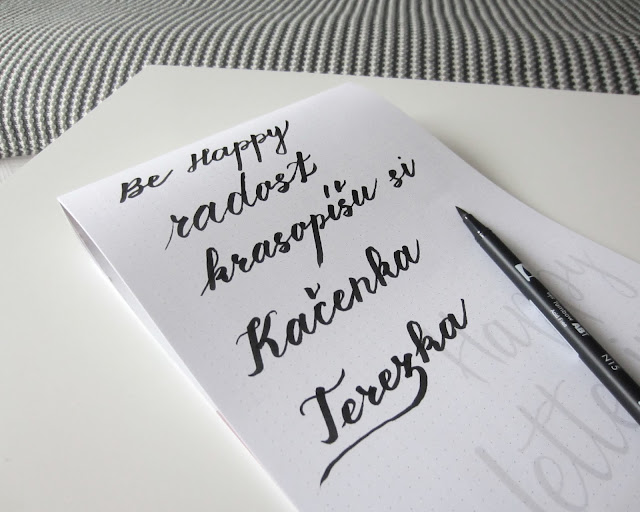 Be Happy
radost
krasopíšu si
Kačenka
Terezka
Tombow ABT
N15
Happy
lette